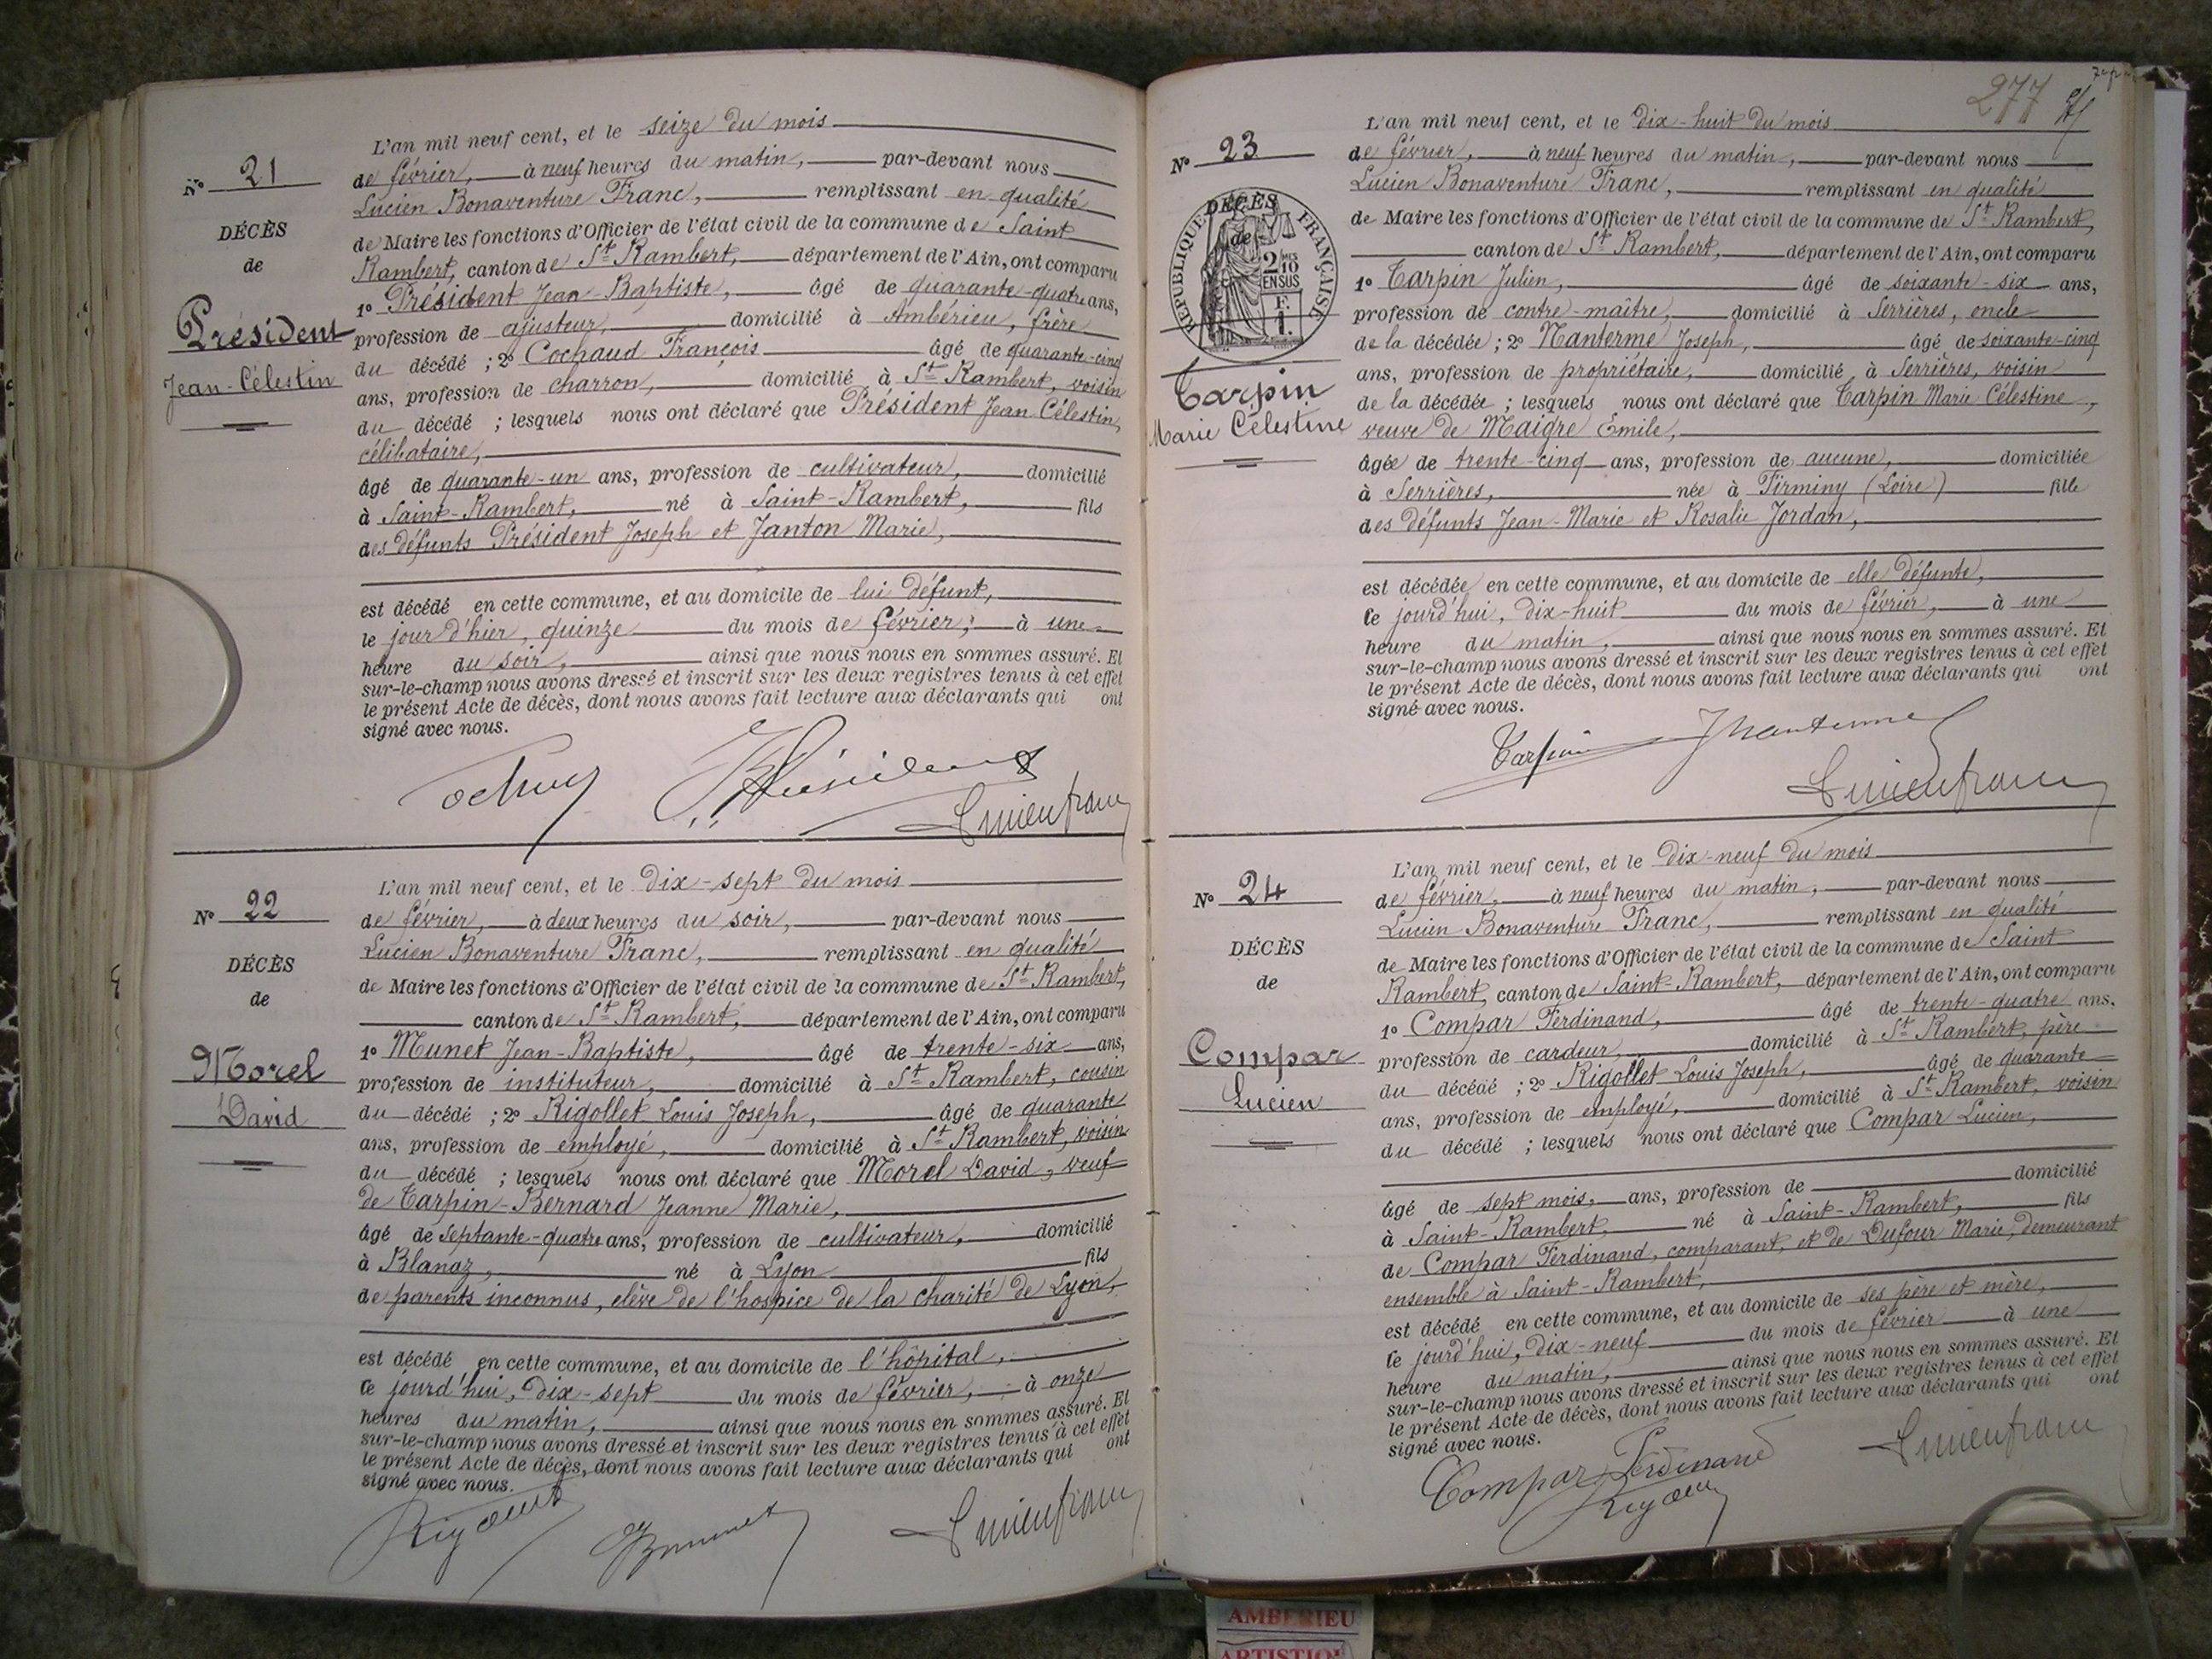 N° 21
DÉCÈS
de
Président
Jean-Célestin
L'an mil neuf cent, et le seize du mois
de février, à neuf heures du matin, par-devant nous
Lucien Bonaventure Franc, remplissant en qualité
de Maire les fonctions d'Officier de l'état civil de la commune de Saint
Rambert, canton de St Rambert, département de l'Ain, ont comparu
1° Président Jean-Baptiste, âgé de quarante-quatre ans,
profession de ajusteur, domicilié à Ambérieu, frère
du décédé ; 2° Cochaud François âgé de quarante-cinq
ans, profession de charron, domicilié à St Rambert, voisin
du décédé ; lesquels nous ont déclaré que Président Jean-Célestin,
célibataire,
âgé de quarante-un ans, profession de cultivateur, domicilié
à Saint-Rambert, né à Saint-Rambert, fils
des défunts Président Joseph et Janton Marie,
est décédé en cette commune, et au domicile de lui défunt,
le jour d'hier, quinze du mois de février, à une
heure du soir, ainsi que nous nous en sommes assuré. Et
sur-le-champ nous avons dressé et inscrit sur les deux registres tenus à cet effet
le présent Acte de décès, dont nous avons fait lecture aux déclarants qui ont
signé avec nous.
Lucien franc
N° 22
DÉCÈS
de
Morel
David
L'an mil neuf cent, et le dix-sept du mois
de février, à deux heures du soir, par-devant nous
Lucien Bonaventure Franc, remplissant en qualité
de Maire les fonctions d'Officier de l'état civil de la commune de St Rambert,
canton de St Rambert, département de l'Ain, ont comparu
1° Munet Jean-Baptiste, âgé de trente-six ans,
profession de instituteur, domicilié à St Rambert, cousin
du décédé ; 2° Rigollet Louis Joseph, âgé de quarante
ans, profession de employé, domicilié à St Rambert, voisin
du décédé ; lesquels nous ont déclaré que Morel David, veuf
de Tarpin-Bernard Jeanne Marie,
âgé de septante-quatre ans, profession de cultivateur, domicilié
à Blanaz, né à Lyon fils
de parents inconnus, elève de l'hospice de la charité de Lyon,
est décédé en cette commune, et au domicile de l'hôpital,
le jourd'hui, dix-sept du mois de février, à onze
heures du matin, ainsi que nous nous en sommes assuré. Et
sur-le-champ nous avons dressé et inscrit sur les deux registres tenus à cet effet
le présent Acte de décès, dont nous avons fait lecture aux déclarants qui ont
signé avec nous.
Lucien franc
277
N° 23
DÉCÈS
de
RÉPUBLIQUE FRANÇAISE
2/10
EN SUS
Tarpin
Marie Célestine
L'an mil neuf cent, et le dix-huit du mois
de février, à neuf heures du matin, par-devant nous
Lucien Bonaventure Franc, remplissant en qualité
de Maire les fonctions d'Officier de l'état civil de la commune de St Rambert,
canton de St Rambert, département de l'Ain, ont comparu
1° Tarpin Julien, âgé de soixante-six ans,
profession de contre-maître, domicilié à Serrières, oncle
de la décédée ; 2° Nanterme Joseph, âgé de soixante-cinq
ans, profession de propriétaire, domicilié à Serrières, voisin
de la décédée ; lesquels nous ont déclaré que Tarpin Marie Célestine,
veuve de Maigre Émile,
âgée de trente-cinq ans, profession de aucune, domiciliée
à Serrières, née à Firminy (Loire) fille
des défunts Jean-Marie et Rosalie Jordan,
est décédée en cette commune, et au domicile de elle défunte,
le jourd'hui, dix-huit du mois de février, à une
heure du matin, ainsi que nous nous en sommes assuré. Et
sur-le-champ nous avons dressé et inscrit sur les deux registres tenus à cet effet
le présent Acte de décès, dont nous avons fait lecture aux déclarants qui ont
signé avec nous.
Tarpin JNanterme
Lucien franc
N° 24
DÉCÈS
de
Compar
Lucien
L'an mil neuf cent, et le dix-neuf du mois
de février, à neuf heures du matin, par-devant nous
Lucien Bonaventure Franc, remplissant en qualité
de Maire les fonctions d'Officier de l'état civil de la commune de Saint
Rambert, canton de Saint-Rambert, département de l'Ain, ont comparu
1° Compar Ferdinand, âgé de trente-quatre ans,
profession de cardeur, domicilié à St Rambert, père
du décédé ; 2° Rigollet Louis Joseph, âgé de quarante
ans, profession de employé, domicilié à St Rambert, voisin
du décédé ; lesquels nous ont déclaré que Compar Lucien,
âgé de sept mois, ans, profession de domicilié
à Saint-Rambert, né à Saint-Rambert, fils
de Compar Ferdinand, comparant, et de Dufour Marie, demeurant
ensemble à Saint-Rambert,
est décédé en cette commune, et au domicile de ses père et mère,
le jourd'hui, dix-neuf du mois de février à une
heure du matin, ainsi que nous nous en sommes assuré. Et
sur-le-champ nous avons dressé et inscrit sur les deux registres tenus à cet effet
le présent Acte de décès, dont nous avons fait lecture aux déclarants qui ont
signé avec nous.
Compar Ferdinand Lucien franc
AMBERIEU